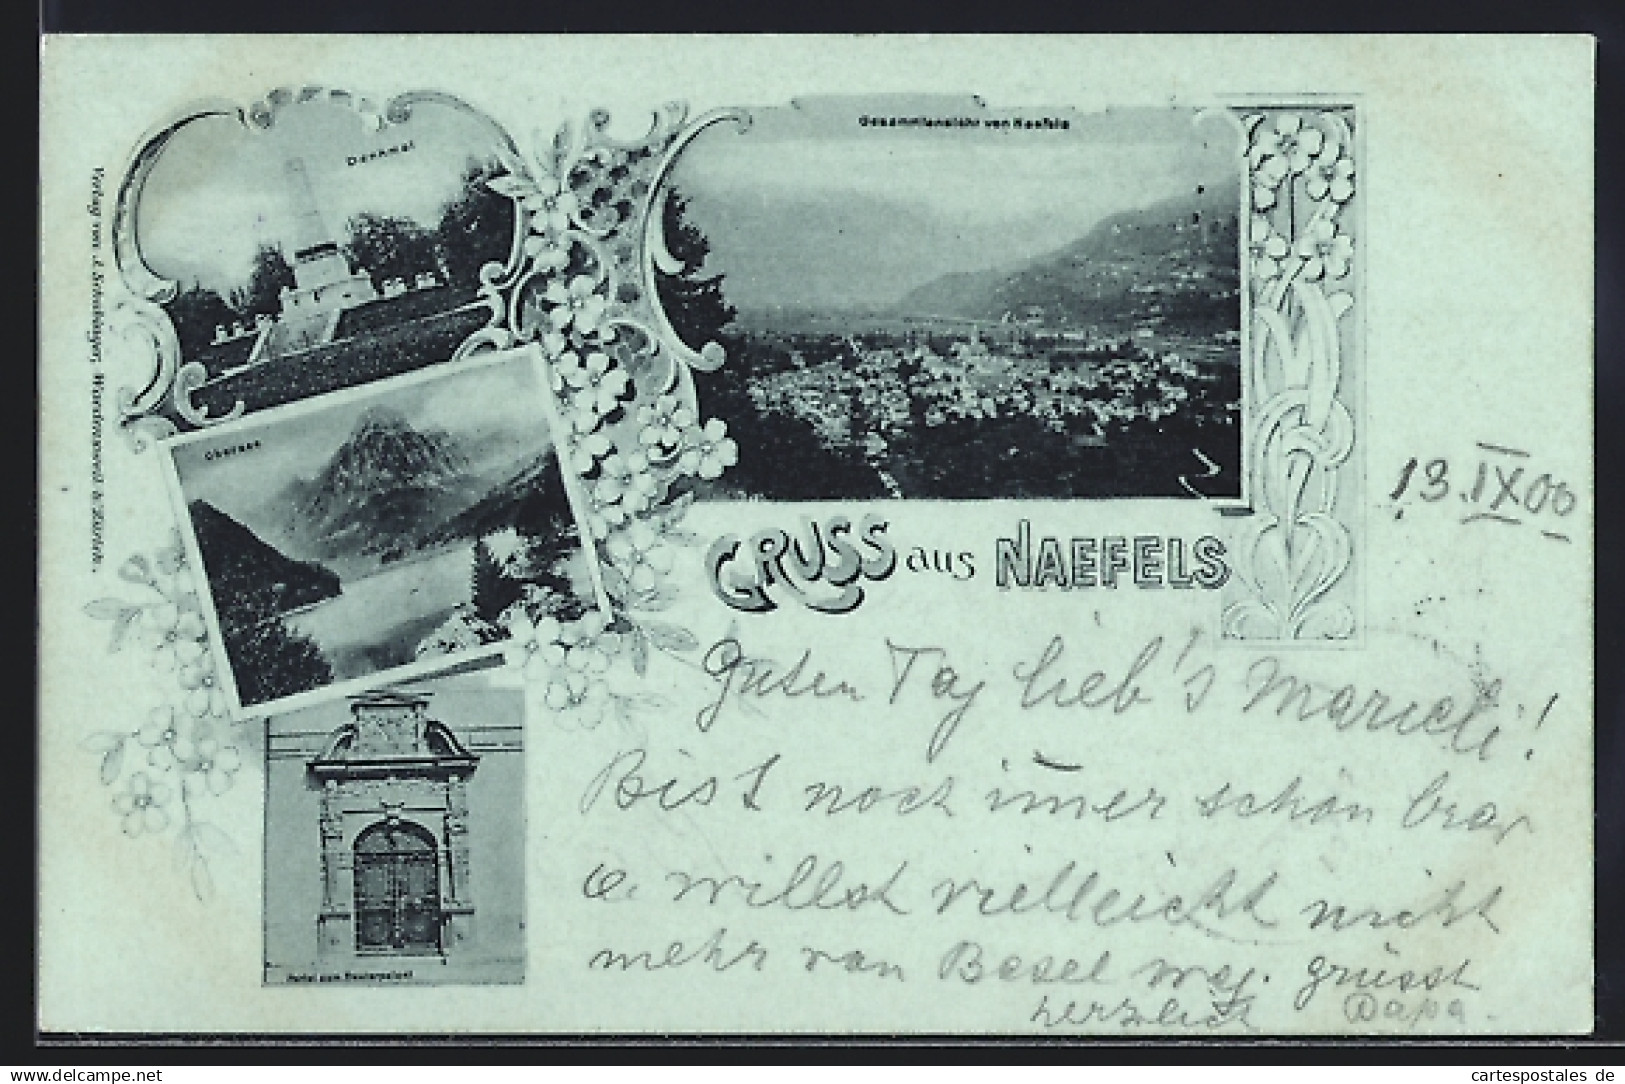 Denkmal
Gesammtansicht von Naefels
Obersee
Verlag von J. Schönenberger, Wändenswil b. Zürich.
13.IX 00
GRUSS aus NAEFELS
Guten Tag lieb's Marieli!
Bist noch im̄er schön brav
u. willst vielleicht nicht
mehr von Basel weg. grüsst
herzlich Papa.
Portal zum Freulerpalast
delcampe.net
cartespostales de